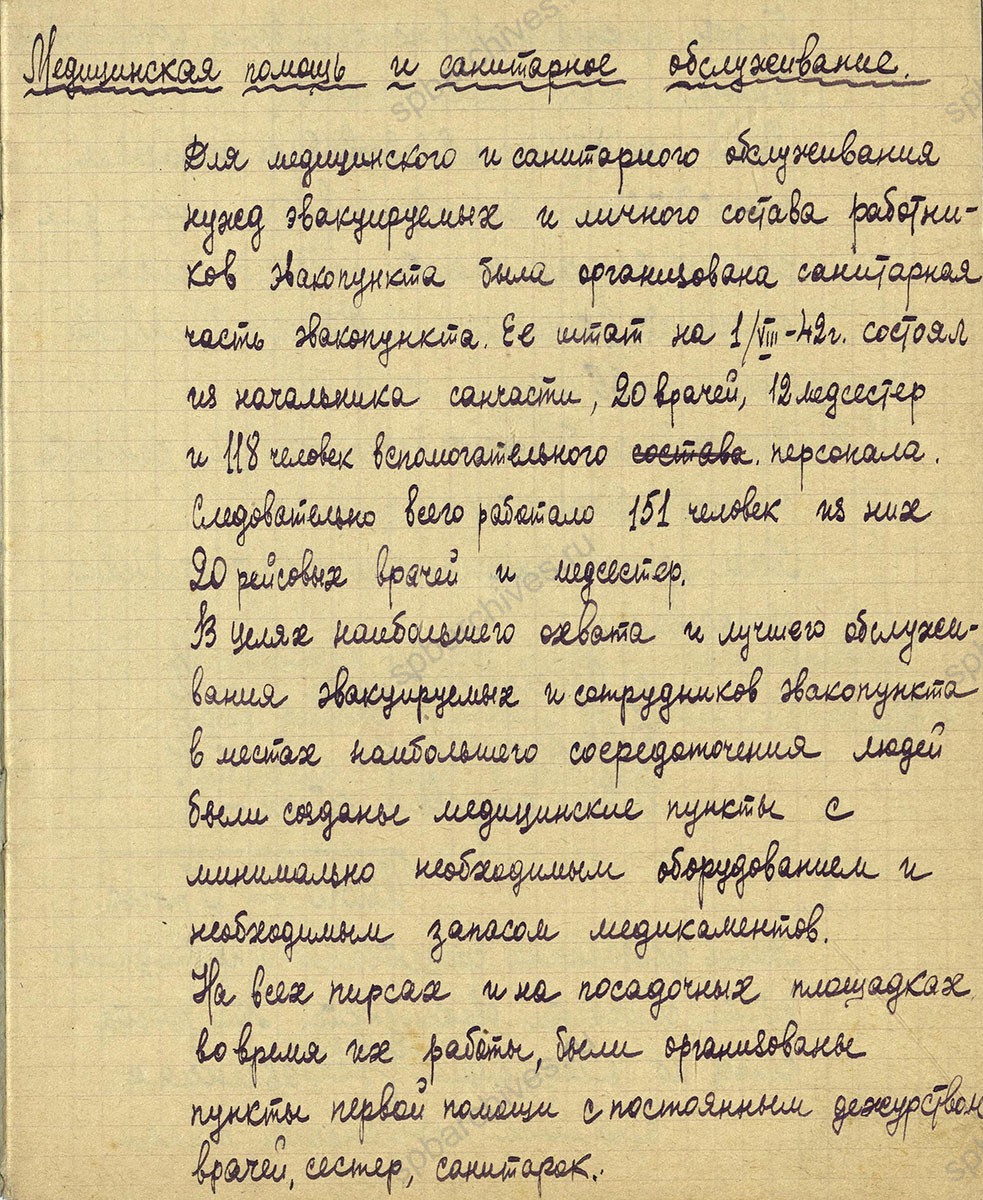 Медицинская помощь и санитарное обслуживание.
Для медицинского и санитарного обслуживания
нужд эвакуируемых и личного состава работни-
ков эвакопункта была организована санитарная
часть эвакопункта. Ее штат на 1/VIII-42г. состоял
из начальника санчасти, 20 врачей, 12 медсестер
и 118 человек вспомогательного состава. персонала.
Следовательно всего работало 151 человек из них
20 рейсовых врачей и медсестер.
В целях наибольшего охвата и лучшего обслужи-
вания эвакуируемых и сотрудников эвакопункта
в местах наибольшего сосредоточения людей
были созданы медицинские пункты с
минимально необходимым оборудованием и
необходимым запасом медикаментов.
На всех пирсах и на посадочных площадках,
во время их работы, были организованы
пункты первой помощи с постоянным дежурством
врачей, сестер, санитарок.
spbarchives.ru